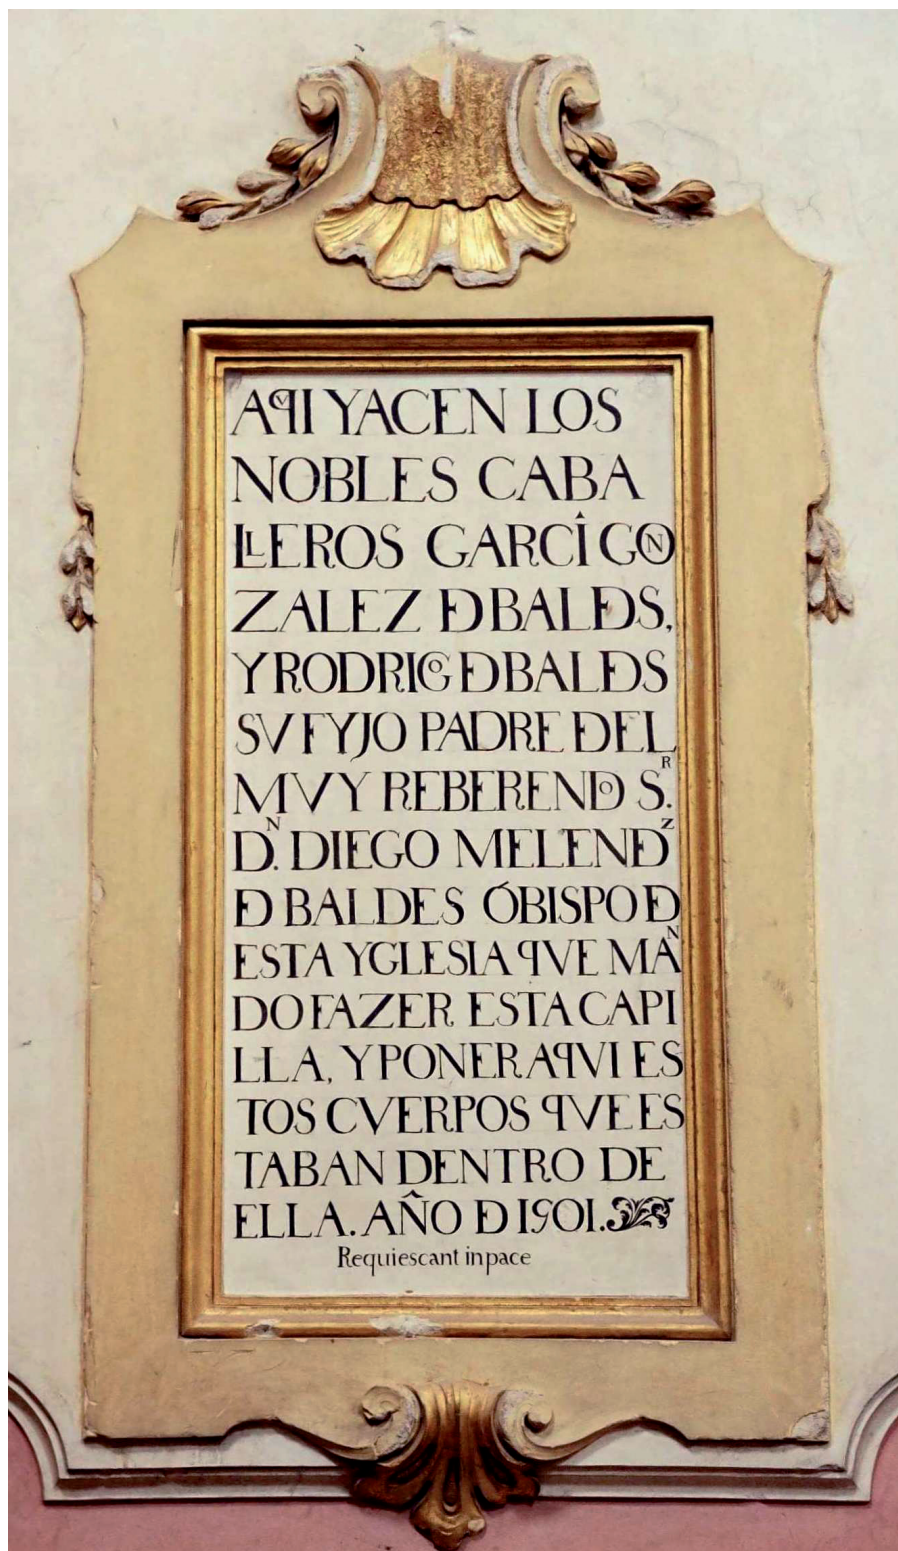 AQVI YACEN LOS
NOBLES CABA
LLEROS GARCÎ GON
ZALEZ DE BALDES,
Y RODRIGO DE BALDES
SV FYJO PADRE DEL
MVY REBERENDO S.R
D.N DIEGO MELENDEZ
DE BALDES ÓBISPO DE
ESTA YGLESIA QVE MAN
DO FAZER ESTA CAPI
LLA, Y PONER AQVI ES
TOS CVERPOS QVE ES
TABAN DENTRO DE
ELLA. AÑO DE 1501.
Requiescant in pace